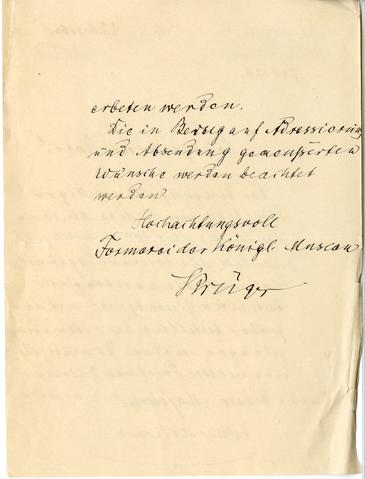 erbeten werden.
Die in Bezug auf Adressierung
und Absendung geaeusserten
Wünsche werden beachtet
werden
Hochachtungsvoll
Formerei der Königl. Museen
Krüger